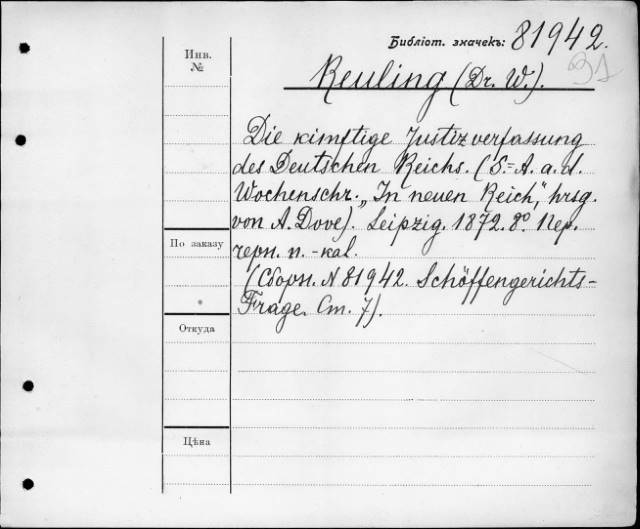 Библіот. значекъ: 81942.
Инв.
№
31
Reuling (Dr. W.).
Die kimftige Justizverfassung
des Deutschen Reichs. (S.-A. a. d.
Wochenschr. „In neuen Reich“, hrsg.
von A. Dove). Leipzig. 1872. 8º. Пер.
По заказу
черн. п.-кал.
(Сборн. N 81942. Schöffengerichts-
Frage. Ст. 7).
Откуда
Цѣна